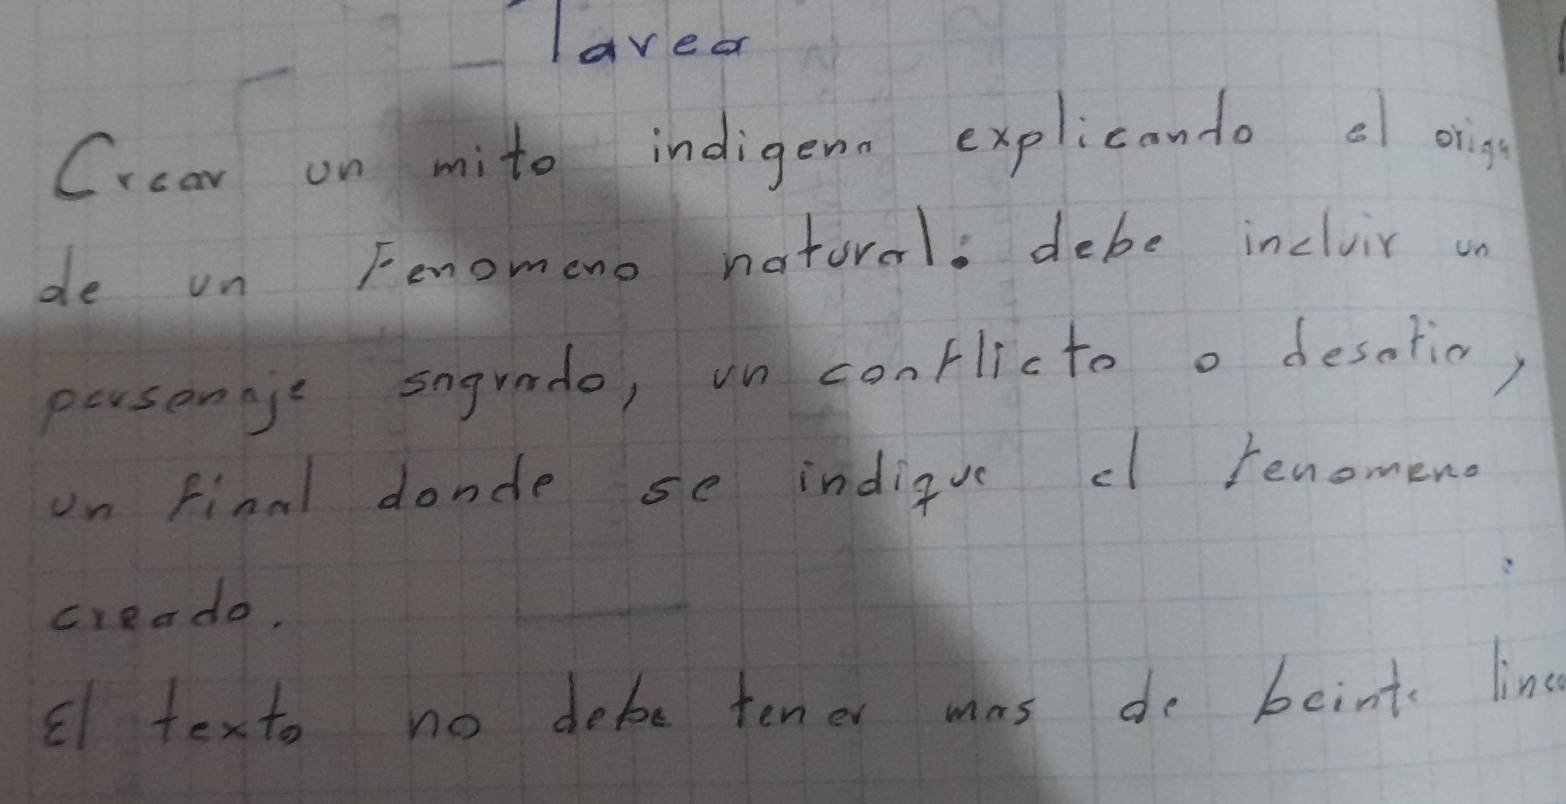 Tarea
Crear un mito indigena explicando el
de un Fenomeno natural: debe incluir un
personaje sagrado, un conflicto o desafio,
un Final donde se indique el fenomeno
creado.
El texto no debe tener mas de beinte